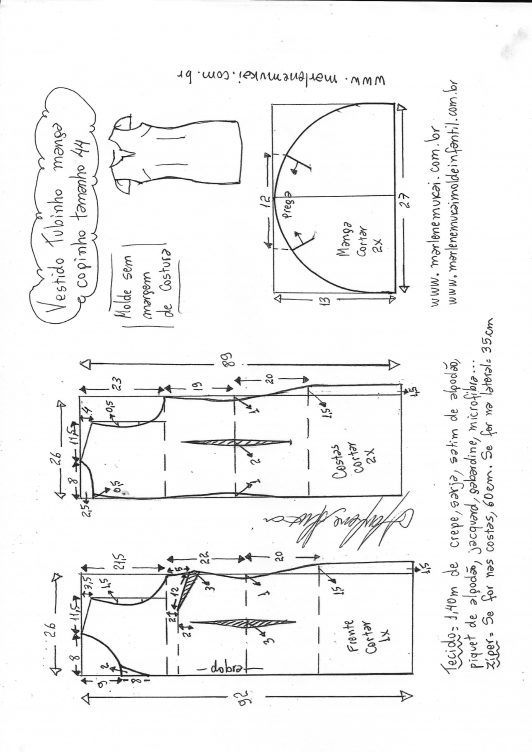 Vestido Tubinho manga
copinho tamanho 44
www.marlenemukai.com.br
Molde sem
margem
de costura
12
Prega
Manga
cortar
2x
13
27
www.marlenemukai.com.br
www.marlenemukaimoldeinfantil.com.br
89
23
19
20
4
0,5
26
11,5
8
2,5
0,5
1
2
1
1,5
1,5
Costas
cortar
2x
21,5
22
20
3,5
1,5
26
11,5
8
9
2
8
5
12
3
2
2
3
1
1,5
1,5
dobra
Frente
Cortar
1x
92
Tecido= 1,40m de crepe, sarja, satim de algodão,
piquet de algodão, jacquard, gabardine, microfibra...
Ziper= Se for nas costas, 60cm. Se for na lateral= 35cm